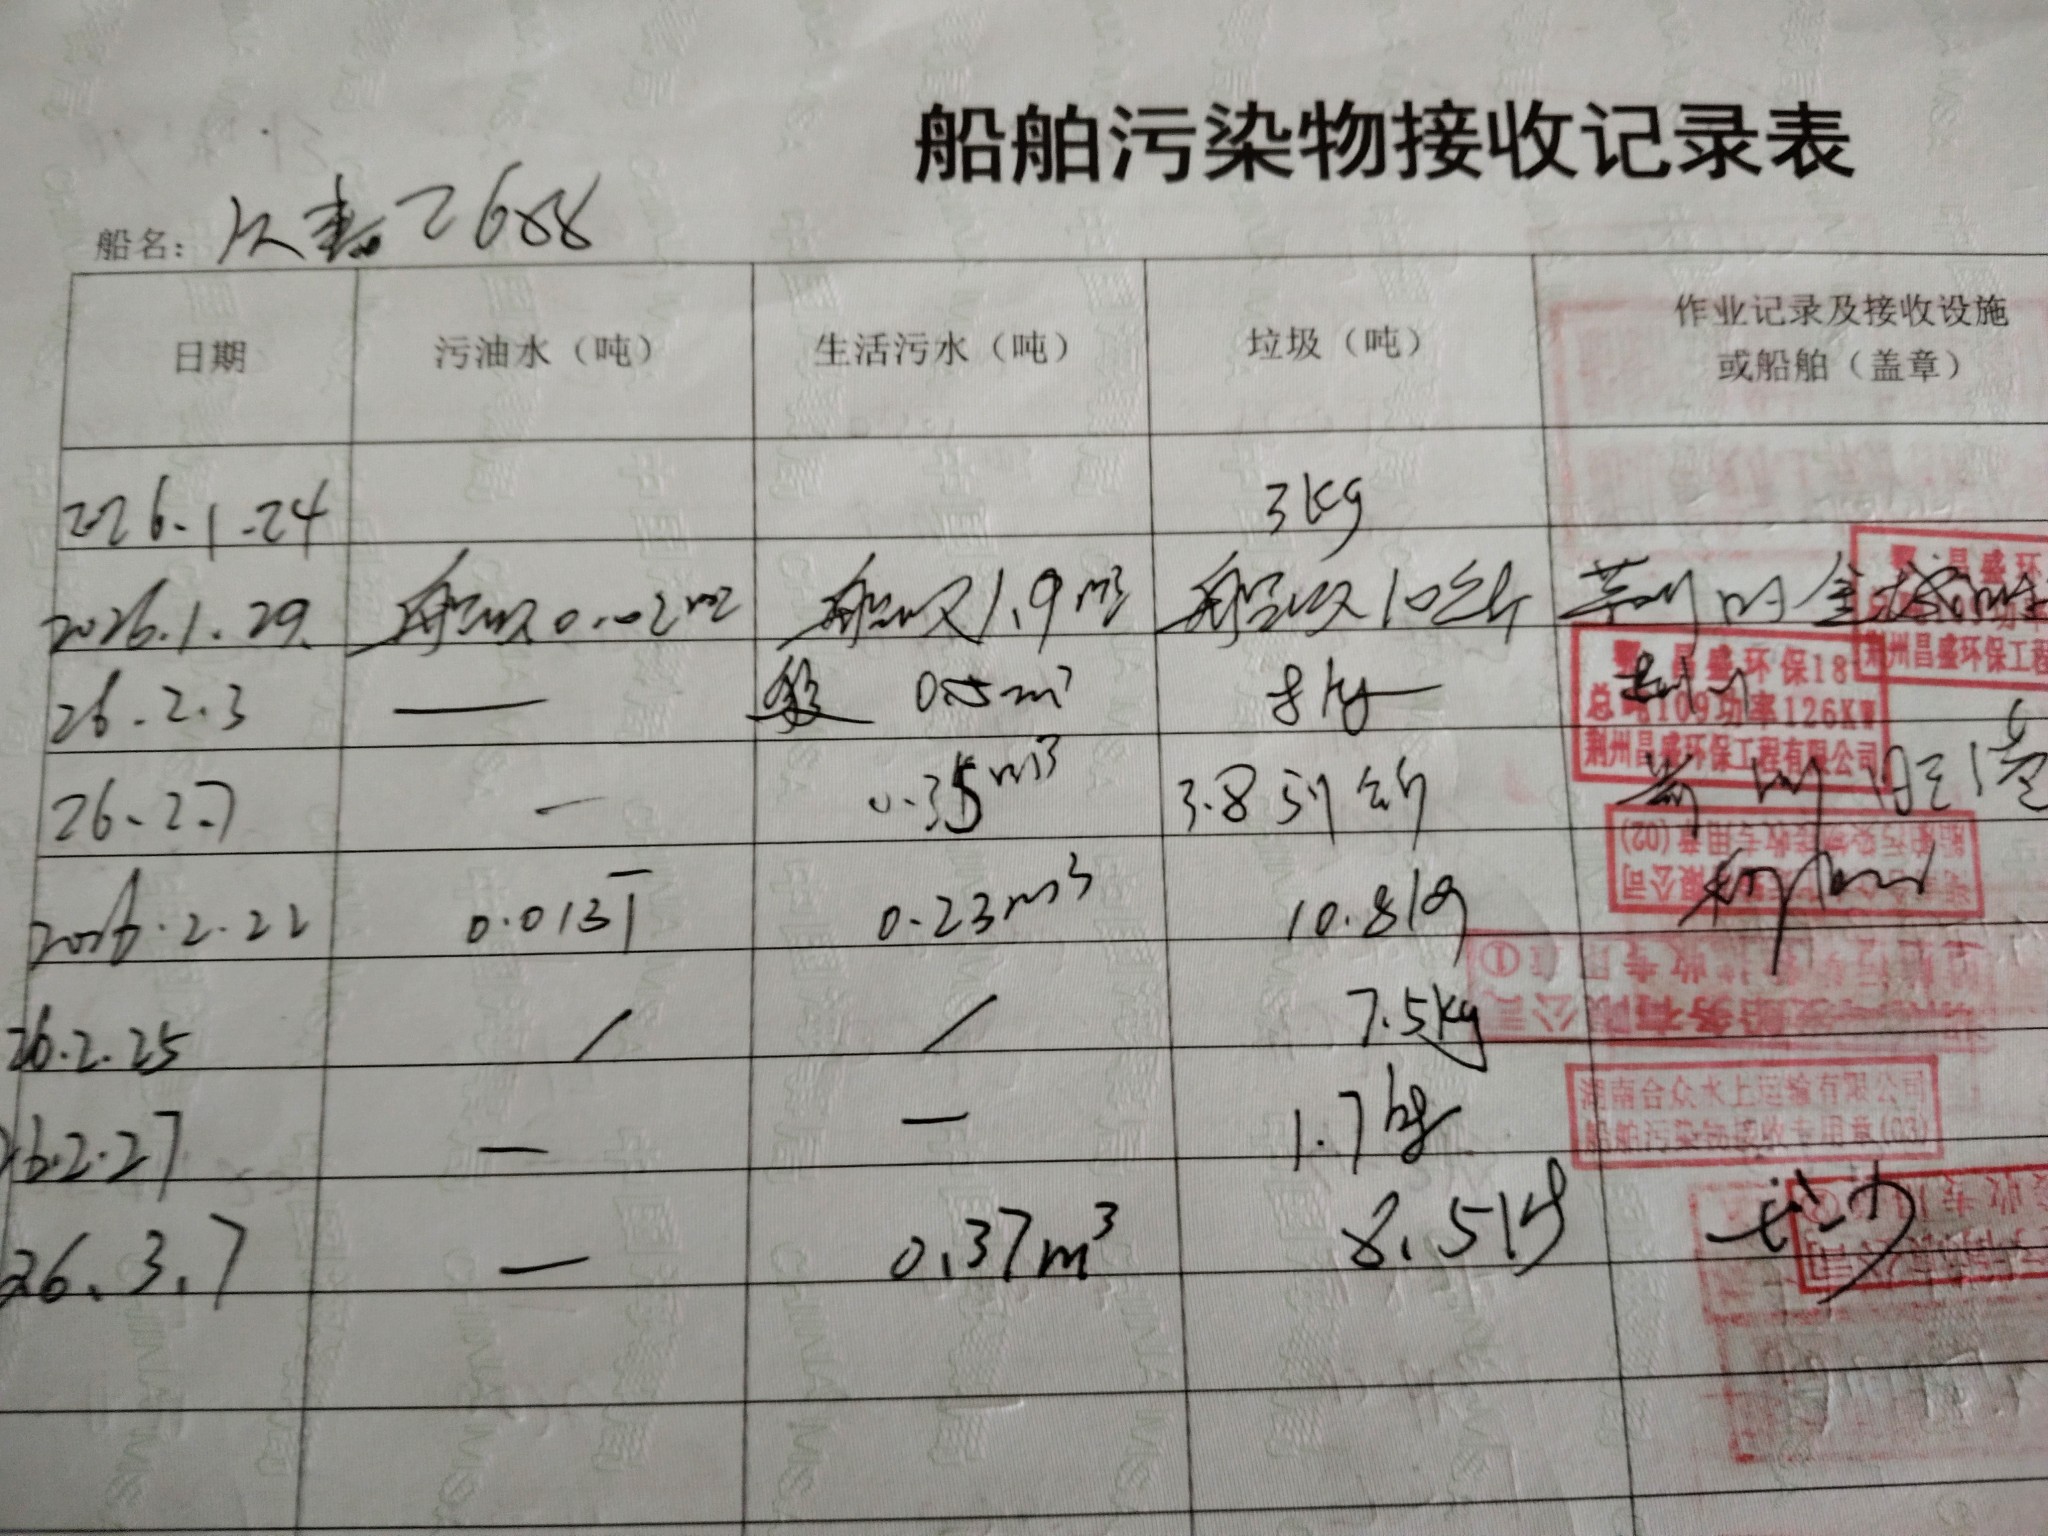 船舶污染物接收记录表
船名： 2688
日期 污油水（吨） 生活污水（吨） 垃圾（吨） 作业记录及接收设施
或船舶（盖章）
2026.1.24 3kg
2026.1.29. 船收0.02m3 船收1.9m3 船收10公斤 荆州
鄂 昌盛环
荆州昌盛环保工程
26.2.3 — 0.5m³ 8kg
昌盛环保18
总 8109功率126KW
荆州昌盛环保工程有限公司
26.2.7 — 0.35m3 3.8 公斤 荆州旺港
船舶污染物接收专用章(02)
限公司
2026.2.22 0.013T 0.23m3 10.8kg
①
船务有限公司
26.2.25 / / 7.5kg
湖南合众水上运输有限公司
船舶污染物接收专用章(03)
26.2.27 — — 1.7kg
26.3.7 — 0.37m3 8.5kg 长沙